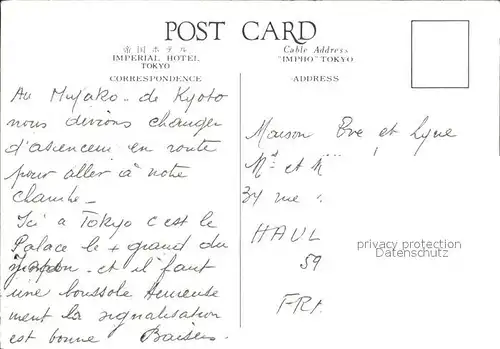 POST CARD
帝国ホテル
IMPERIAL HOTEL
TOKYO
Cable Address
"IMPHO" TOKYO
CORRESPONDENCE
ADDRESS
Au Miyako - de Kyoto
nous devions changer
d'ascenceur en route
pour aller à notre
chambre -
Ici a Tokyo c'est le
Palace le + grand du
Japon - et il faut
une boussole heureuse
ment la signalisation
est bonne Baisers
Maison Eve et Lyne
Md et M
34 rue
HAUL
59
FRA
privacy protection
Datenschutz